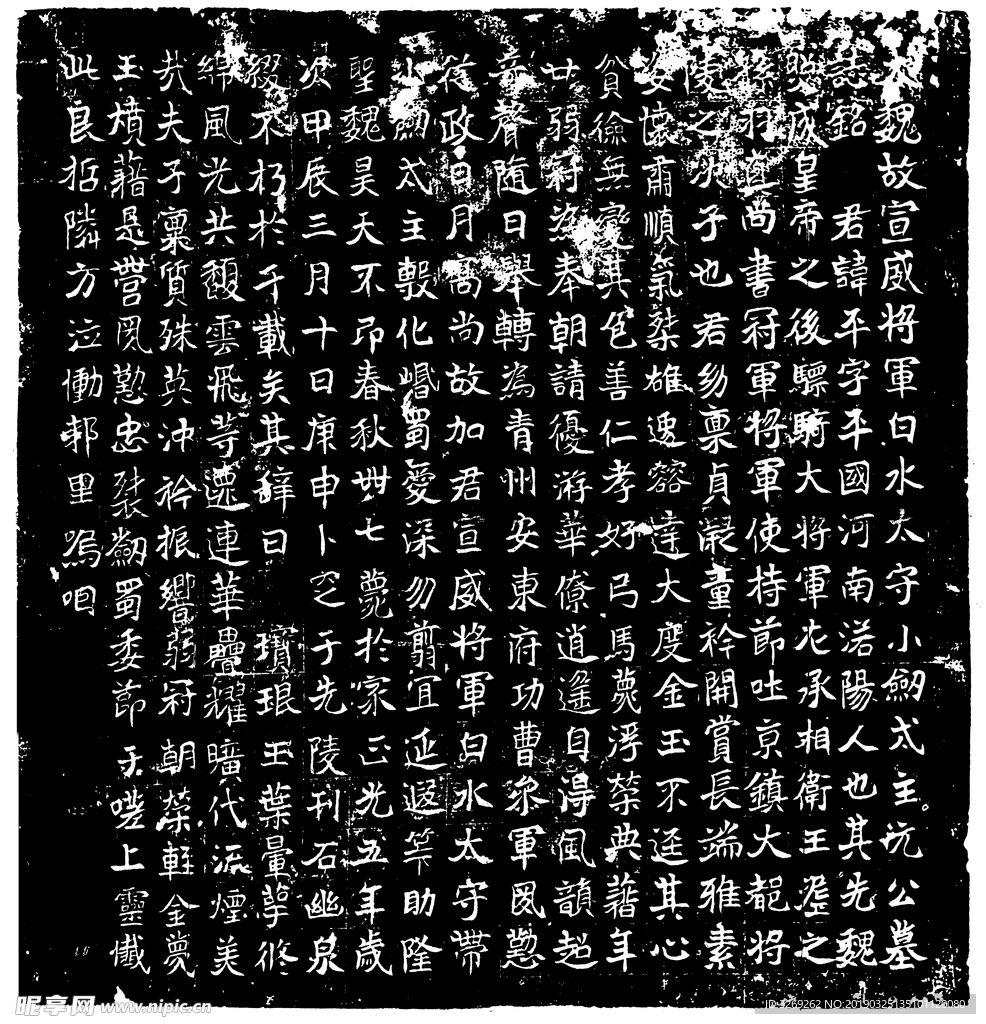 大魏故宣威將軍白水太守小劔戍主元公墓
誌銘　君諱平字平國河南洛陽人也其先魏
照成皇帝之後驃騎大將軍左承相衛王泥之
孫羽真尚書冠軍將軍使持節吐京鎮大都將
陵之次子也君幼禀貞凝童衿開賞長端雅素
姿懷肅順氣桀雄邈容達大度金玉不迕其心
貧儉無變其色善仁孝好弓馬蔑浮榮典藉年
廿弱冠為奉朝請優游華僚逍遙自得風韻超
竒聲随日舉轉為青州安東府功曹叅軍因懃
從政日月高尚故加君宣威將軍白水太守帶
小劔戍主毅化㟭蜀愛深勿翦宜延遐筭助隆
聖魏昊天不弔春秋卌七薨於家正光五年歲
次甲辰三月十日庚申卜窆于先陵刊石幽泉
綴不朽於千載矣其辭曰　璸琅玉葉暈萼修
緜風光共馥雲飛等遰連華疊耀曠代流煙美
哉夫子稟質殊英沖衿振響弱冠朝榮輕金蔑
玉墳藉是營因懃忠袟劔蜀委節　嗟上靈殲
此良哲隣方泣慟邦里嗚咽
昵享网 www.nipic.cn